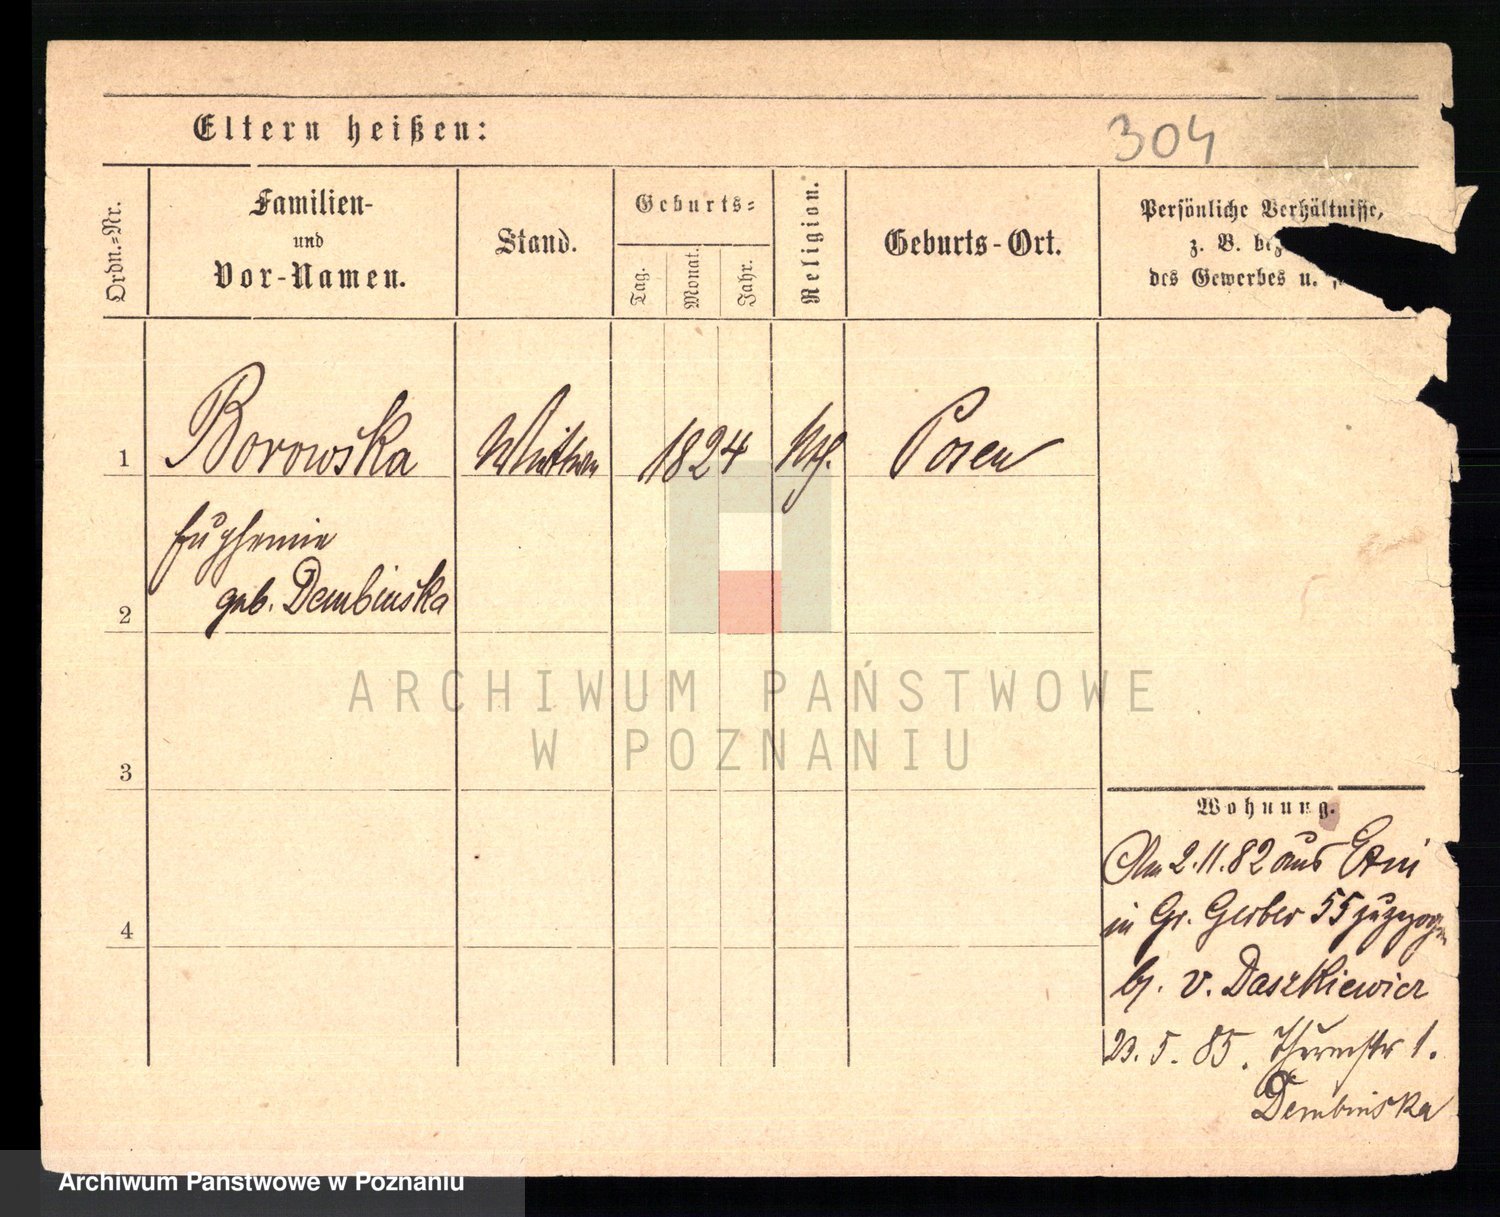 Eltern heißen:
304
Ordn.-Nr.
Familien-
und
Vor-Namen.
Stand.
Geburts-
Tag.
Monat.
Jahr.
Religion.
Geburts-Ort.
Persönliche Verhältnisse,
z. B. bez
des Gewerbes u.
1
Borowska
1824
Posen
Euphemie
geb. Dembinska
2
3
4
ARCHIWUM PAŃSTWOWE
W POZNANIU
Wohnung.
Am 2.11.82 aus
in Gr. Gerber 55 zugezogen
b. v. Daszkiewicz
23. 5. 85. Thurmstr 1.
Dembinska
Archiwum Państwowe w Poznaniu